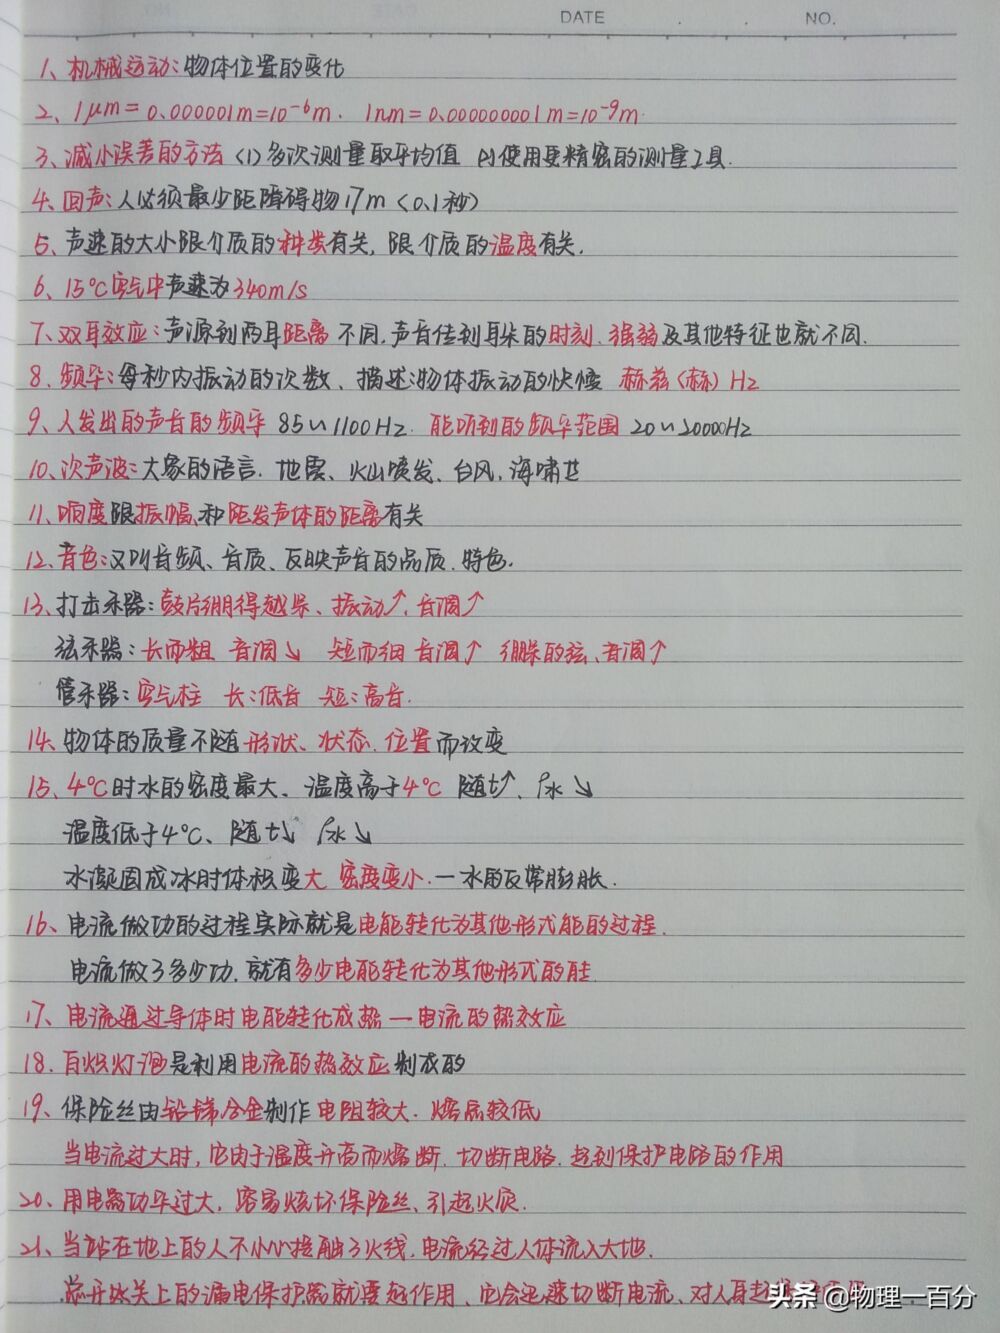 DATE . . NO.
1、机械运动:物体位置的变化
2、1μm=0.000001m=10⁻⁶m. 1nm=0.000000001m=10⁻⁹m.
3、减小误差的方法 (1)多次测量取平均值 (2)使用更精密的测量工具.
4、回声:人必须最少距障碍物17m (0.1秒)
5、声速的大小跟介质的种类有关,跟介质的温度有关.
6、15℃空气中声速为340m/s
7、双耳效应:声源到两耳距离不同,声音传到耳朵的时刻、强弱及其他特征也就不同.
8、频率:每秒内振动的次数、描述:物体振动的快慢 赫兹(赫)Hz
9、人发出的声音的频率 85~1100Hz. 能听到的频率范围 20~20000Hz
10、次声波:大象的语言.地震、火山喷发、台风,海啸
11、响度跟振幅、和距发声体的距离有关
12、音色:又叫音频、音质、反映声音的品质、特色.
13、打击乐器:鼓片绷得越紧、振动↑、音调↑
弦乐器:长而粗 音调↘ 短而细 音调↑ 绷紧的弦、音调↑
管乐器:空气柱 长:低音 短:高音.
14、物体的质量不随形状、状态、位置而改变
15、4℃时水的密度最大、温度高于4℃ 随t↑、ρ水↘
温度低于4℃、随t↘ ρ水↘
水凝固成冰时体积变大 密度变小.—水的反常膨胀.
16、电流做功的过程实际就是电能转化为其他形式能的过程.
电流做了多少功.就有多少电能转化为其他形式的能.
17、电流通过导体时电能转化成热—电流的热效应
18、白炽灯泡是利用电流的热效应制成的
19、保险丝由铅锑合金制作 电阻较大.熔点较低
当电流过大时,它由于温度升高而熔断.切断电路.起到保护电路的作用
20、用电器功率过大,容易烧坏保险丝、引起火灾.
21、当站在地上的人不小心接触了火线,电流经过人体流入大地.
总开关上的漏电保护器就要起作用、它会迅速切断电流、对人身起
头条 @物理一百分